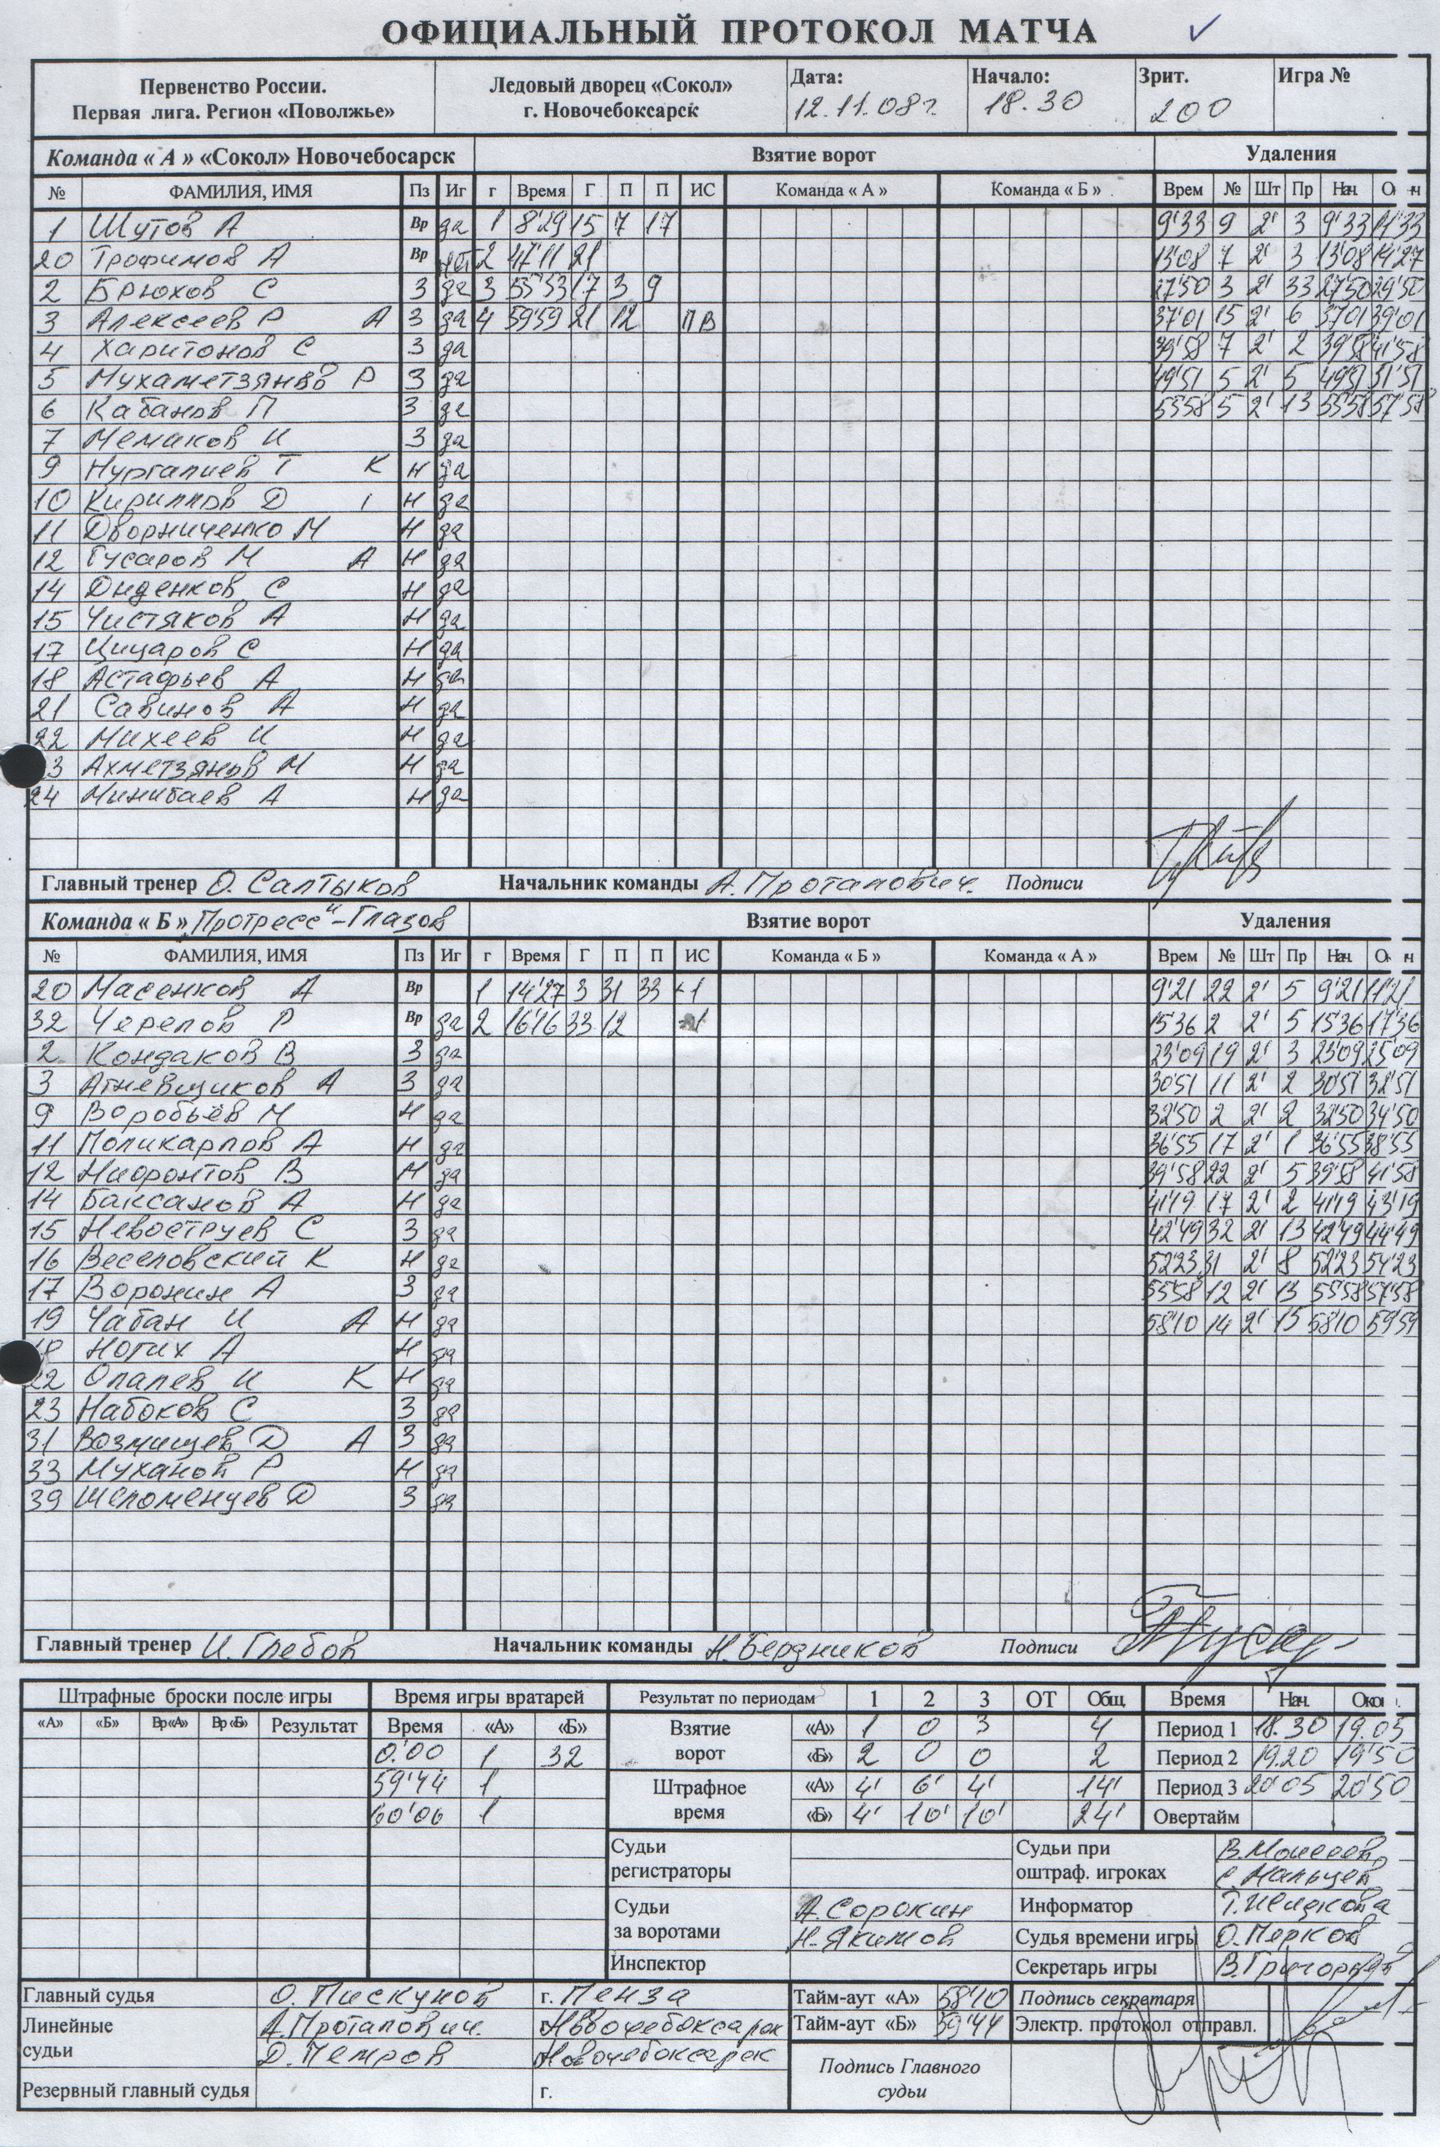 ОФИЦИАЛЬНЫЙ ПРОТОКОЛ МАТЧА
Первенство России. Первая лига. Регион «Поволжье» Ледовый дворец «Сокол» г. Новочебоксарск Дата: 12.11.08г. Начало: 18.30 Зрит. 200 Игра №
Команда « А » «Сокол» Новочебосарск Взятие ворот Удаления
№ ФАМИЛИЯ, ИМЯ Пз Иг г Время Г П П ИС Команда « А » Команда « Б » Врем № Шт Пр Нач. Ок ч
1 Шутов А Вр да 1 8'29 15 7 17 9'33 9 2' 3 9'33 11'33
20 Трофимов А Вр нет 2 47'11 21 13'08 7 2' 3 13'08 14'27
2 Брюхов С З да 3 55'53 17 3 9 27'50 3 2' 33 27'50 29'50
3 Алексеев Р А З да 4 59'59 21 12 ПВ 37'01 15 2' 6 37'01 39'01
4 Харитонов С З да 39'58 7 2' 2 39'58 41'58
5 Мухаметзянов Р З да 49'51 5 2' 5 49'51 51'51
6 Кабанов П З да 55'58 5 2' 13 55'58 57'58
7 Мемаков И З да
9 Нургалиев Т К Н да
10 Кириллов D Н да
11 Дворниченко М Н да
12 Гусаров М А Н да
14 Диденков С Н да
15 Чистяков А Н да
17 Цицаров С Н да
18 Астафьев А Н да
21 Савинов А Н да
22 Михеев И Н да
23 Ахметзянов М Н да
24 Минибаев А Н да
Главный тренер О. Салтыков Начальник команды А. Протапович. Подписи
Команда « Б » "Прогресс"-Глазов Взятие ворот Удаления
№ ФАМИЛИЯ, ИМЯ Пз Иг г Время Г П П ИС Команда « Б » Команда « А » Врем № Шт Пр Нач. Ок ч
20 Масенков А Вр 1 14'27 3 31 33 +1 9'21 22 2' 5 9'21 11'21
32 Черепов Р Вр да 2 16'16 33 12 15'36 2 2' 5 15'36 17'36
2 Кондаков В З да 23'09 19 2' 3 23'09 25'09
3 Агневщиков А З да 30'51 11 2' 2 30'51 32'51
9 Воробьёв М Н да 32'50 2 2' 2 32'50 34'50
11 Поликарпов А Н да 36'55 17 2' 1 36'55 38'55
12 Нифонтов В Н да 39'58 22 2' 5 39'58 41'58
14 Баксанов А Н да 41'19 17 2' 2 41'19 43'19
15 Невоструев С З да 42'49 32 2' 13 42'49 44'49
16 Веселовский К Н да 52'23 31 2' 8 52'23 54'23
17 Воронин А З да 55'58 12 2' 13 55'58 57'58
19 Чабан И А Н да 58'10 14 2' 15 58'10 59'59
18 Ногих А Н да
22 Опалев И К Н да
23 Набоков С З да
31 Возмищев D А З да
33 Муханов Р Н да
39 Шеломенцев D З да
Главный тренер И. Глебов Начальник команды Н. Бердников Подписи
Штрафные броски после игры Время игры вратарей Результат по периодам 1 2 3 ОТ Общ. Время Нач. Окон
«А» «Б» Вр «А» Вр «Б» Результат Время «А» «Б» Взятие ворот «А» 1 0 3 4 Период 1 18.30 19.05
0'00 1 32 «Б» 2 0 0 2 Период 2 19.20 19'50
59'44 1 Штрафное время «А» 4' 6' 4' 14' Период 3 20'05 20'50
60'00 1 «Б» 4' 10' 10' 24' Овертайм
Судьи регистраторы Судьи при оштраф. игроках В. Моисеев С. Мальцев
Судьи за воротами А. Сорокин Н. Якимов Информатор
Судья времени игры О. Перков
Инспектор Секретарь игры В. Григорьев
Главный судья О. Пискунов г. Пенза Тайм-аут «А» 58'10 Подпись секретаря
Линейные судьи А. Протапович. г. Новочебоксарск Тайм-аут «Б» 59'44 Электр. протокол отправл.
D. Петров Новочебоксарск Подпись Главного судьи
Резервный главный судья г.